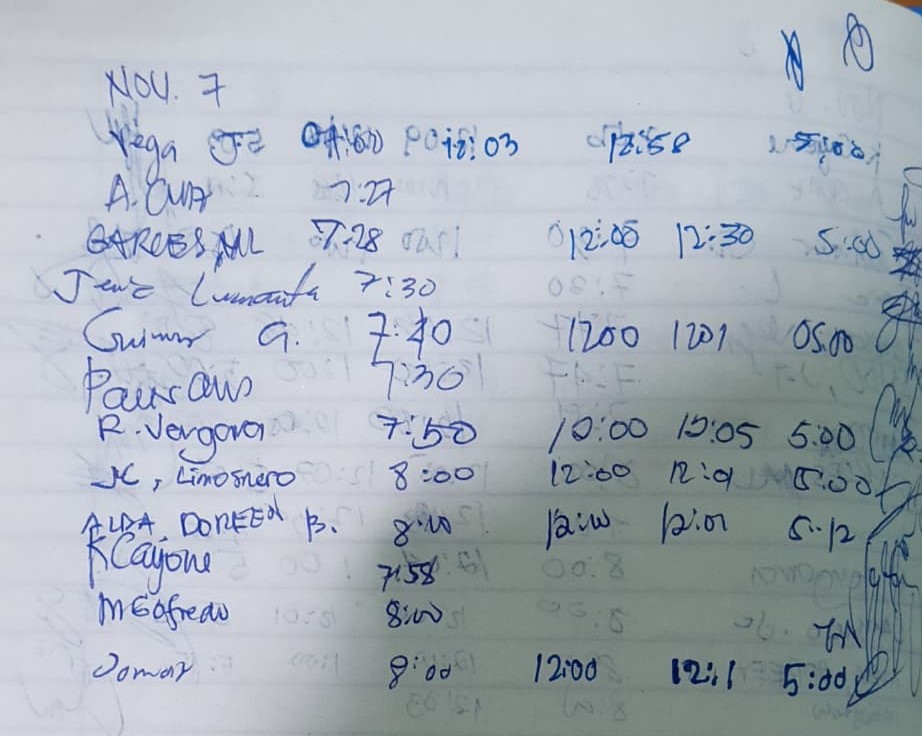 NOV. 7
Vega 12:03 12:58
A. 7:27
GARCES, ML 7:28 12:05 12:30 5:00
7:30
G. 7:40 1200 1201 05:00
7:30
R. Vergara 7:50 12:00 12:05 5:00
JC, Limosnero 8:00 12:00 12:01 5:00
ALDA, DOREEN B. 8:00 12:00 12:01 5:12
K Cayone 7:58
8:00
Jomar 8:00 12:00 12:1 5:00